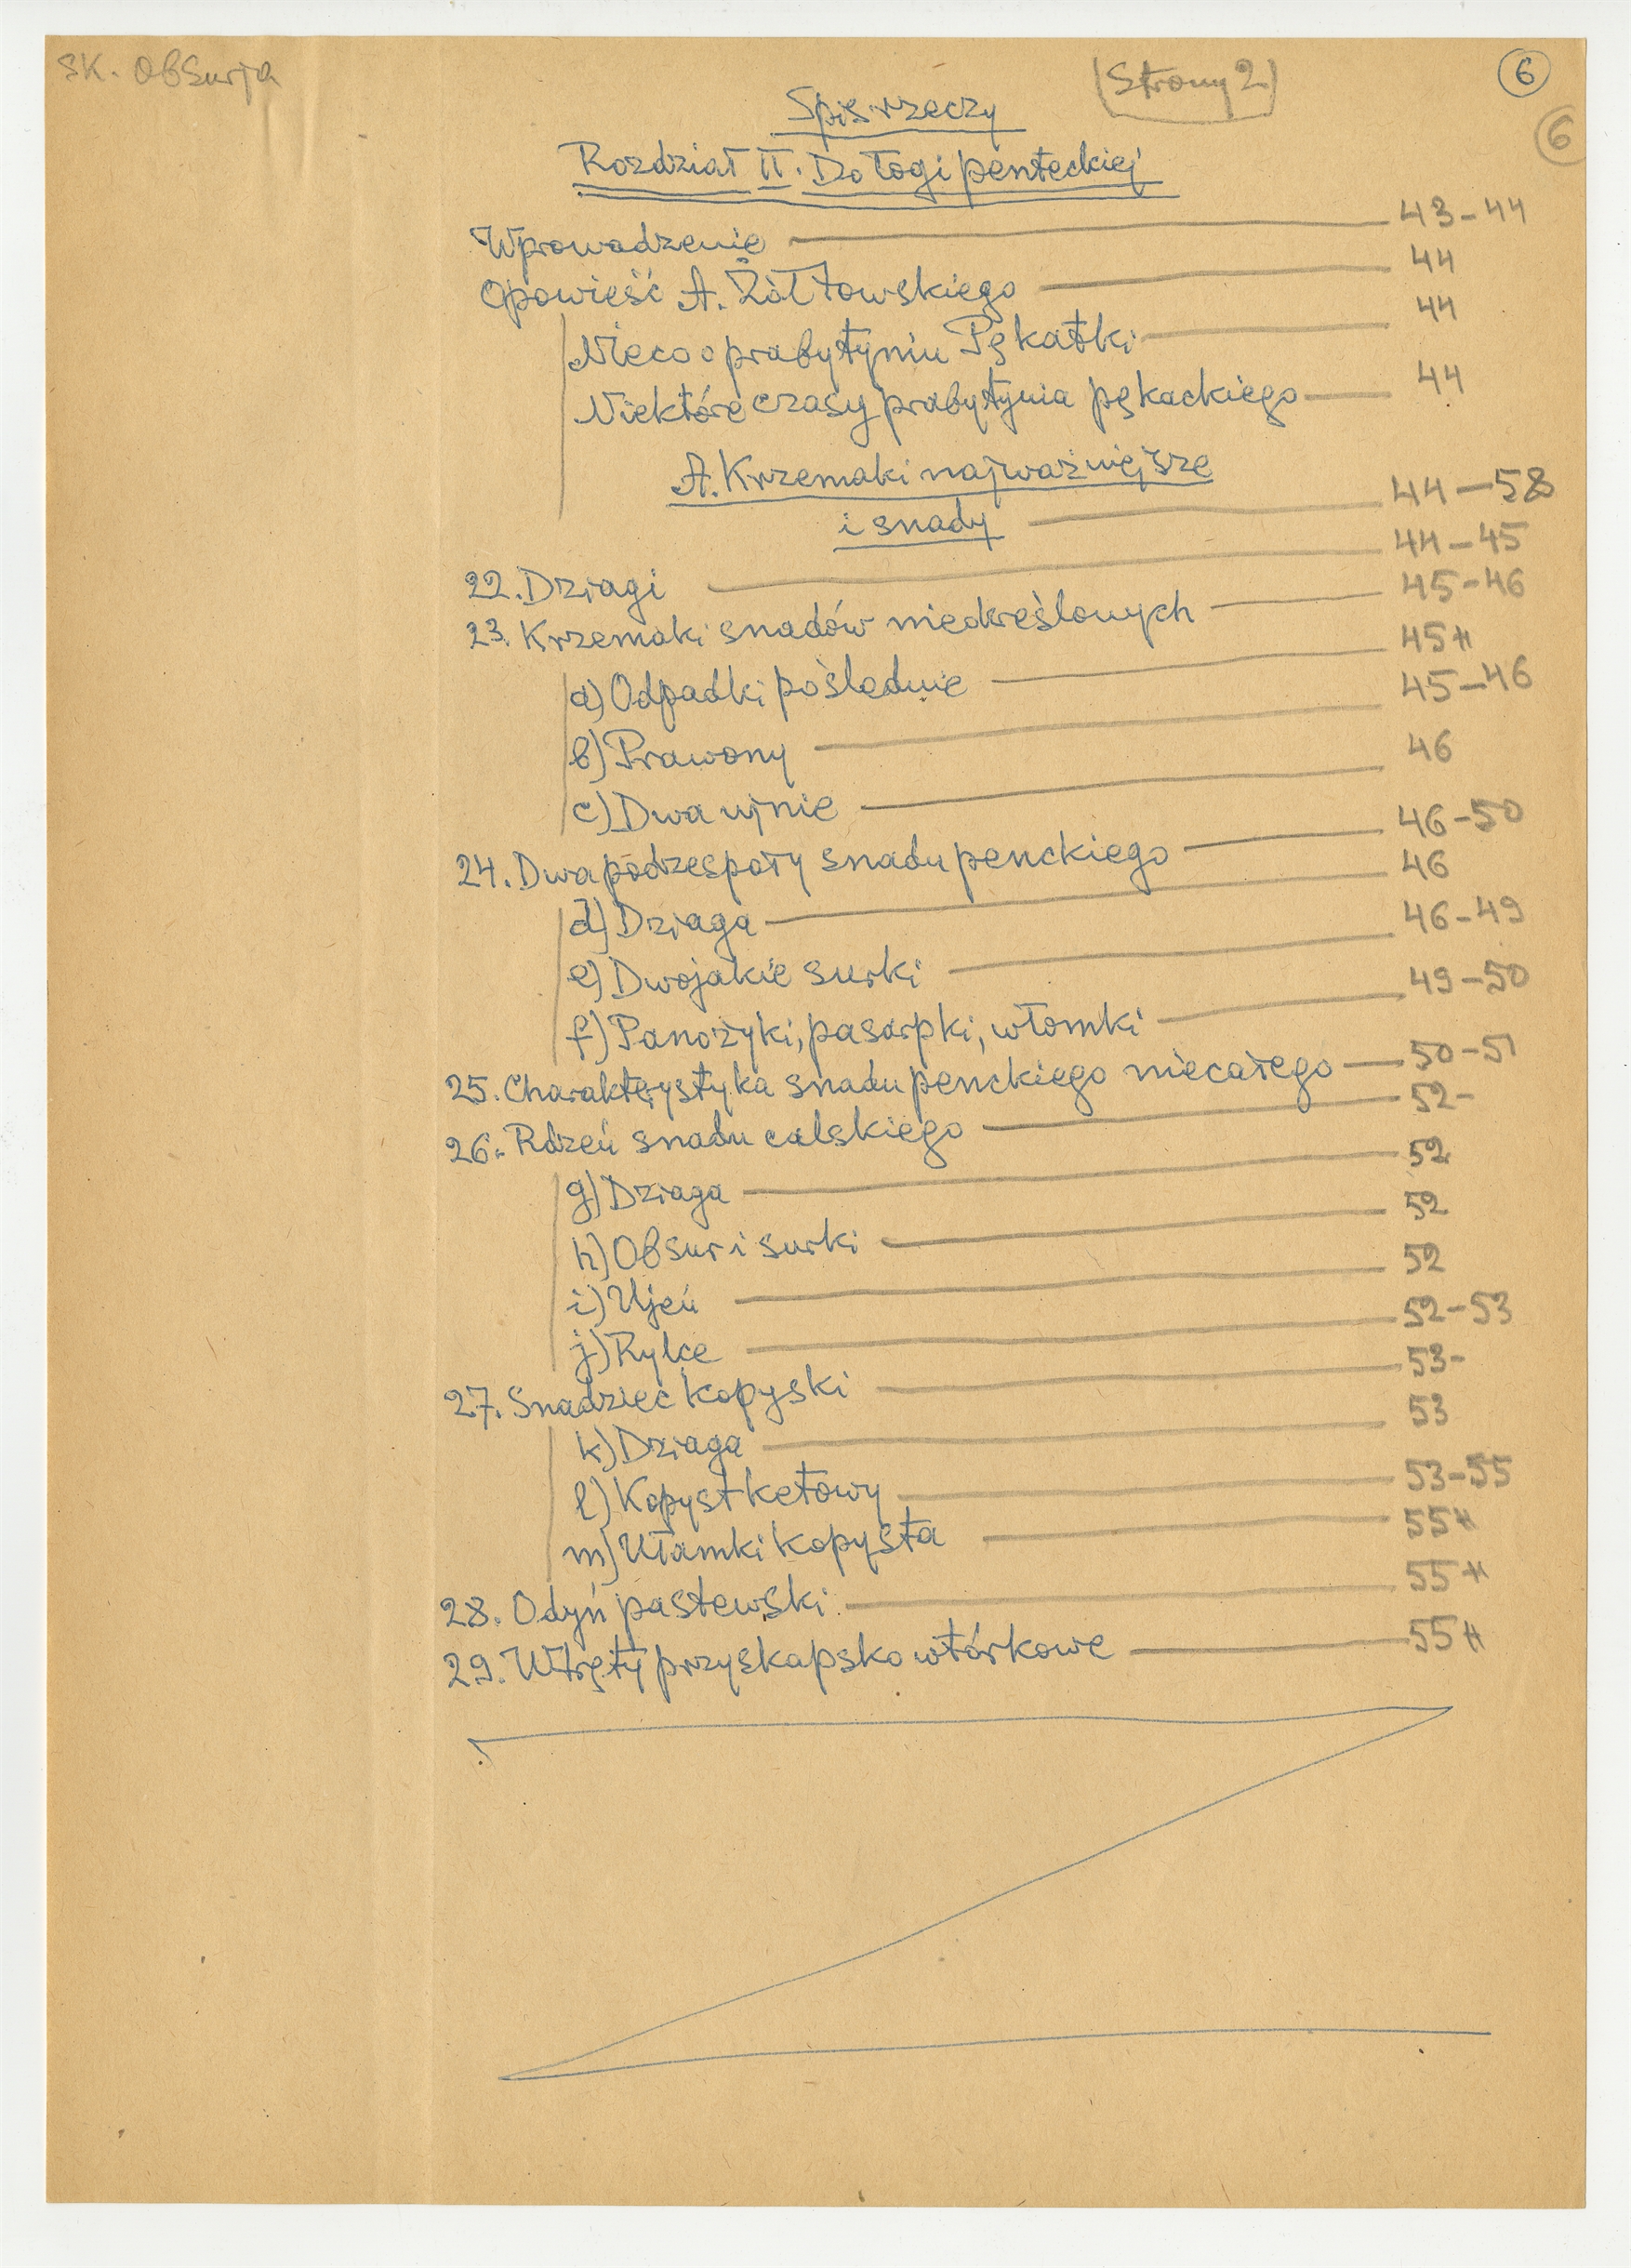 SK. Obsurja
(Strony 2)
6
6
Spis rzeczy
Rozdział II. Do łogi penteckiej
Wprowadzenie 43-44
Opowieść A. Żółtowskiego 44
Nieco o prabytyniu Pękatki 44
Niektóre czasy prabytynia pękackiego 44
A. Krzemaki najważniejsze
i snady 44-58
22. Dziagi 44-45
23. Krzemaki snadów nieokreślonych 45-46
a) Odpadki poślednie 45*
b) Prawony 45-46
c) Dwa ujnie 46
24. Dwa podzespoły snadu penckiego 46-50
d) Dziaga 46
e) Dwojakie surki 46-49
f) Panożyki, pasarpki, włomki 49-50
25. Charakterystyka snadu penckiego niecałego 50-51
26. Rdzeń snadu calskiego 52-
g) Dziaga 52
h) Obsur i surki 52
i) Ujeń 52
j) Rylce 52-53
27. Snadziec kopyski 53-
k) Dziaga 53
l) Kopyst ketowy 53-55
m) Ułamki kopysta 55*
28. Odyń pastewski 55*
29. Wtręty przyskapsko wtórkowe 55*